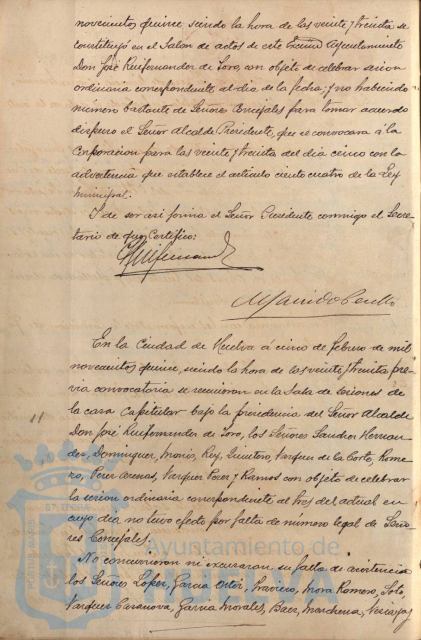 novecientos quince, siendo la hora de las veinte y treinta se
constituyó en el Salon de actos de este Excmo Ayuntamiento
Don José Ruifernandez de Toro, con objeto de celebrar sesion
ordinaria correspondiente al dia de la fecha; y no habiendo
número bastante de Señores Concejales para tomar acuerdo
dispuso el Señor Alcalde Presidente, que se convocara á la
Corporacion para las veinte y treinta del dia cinco con la
advertencia que establece el artículo ciento cuatro de la Ley
Municipal.
Y de ser asi firma el Señor Presidente conmigo el Secre-
tario de que Certifico:
En la Ciudad de Huelva á cinco de febrero de mil
novecientos quince, siendo la hora de las veinte y treinta pre-
via convocatoria se reunieron en la Sala de Sesiones de
la casa Capitular bajo la presidencia del Señor Alcalde
Don José Ruifernandez de Toro, los Señores Sanchez Hernan-
dez, Dominguez, Rey, Quintero, Vazquez de la Corte, Rome-
ro, Perez Vazquez Perez y Ramos con objeto de celebrar
la sesion ordinaria correspondiente al tres del actual en
cuyo dia no tuvo efecto por falta de número legal de Seño-
res Concejales.
No concurrieron ni excusaron su falta de asistencia
los Señores Lopez, Garcia Ortiz, Mora Romero, Soto,
Vazquez Casanova, Garcia Morales, Baez, Marchena,
Ayuntamiento de
HUELVA